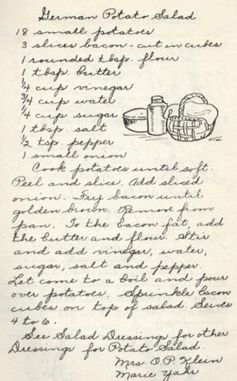 German Potato Salad
18 small potatoes
3 slices bacon - cut in cubes
1 rounded tbsp. flour
1 tbsp. butter
1/4 cup vinegar
3/4 cup water
1/4 cup sugar
1 tbsp. salt
1/2 tsp pepper
1 small onion
Cook potatoes until soft.
Peel and slice. Add sliced
onion. Fry bacon until
golden brown. Remove from
pan. To the bacon fat, add
the butter and flour. Stir
and add vinegar, water,
sugar, salt and pepper.
Let come to a boil and pour
over potatoes. Sprinkle bacon
cubes on top of salad. Serves
4 to 6.
See Salad Dressings for other
Dressings for Potato Salad.
Mrs. O.P. Klein
Marie Yahr